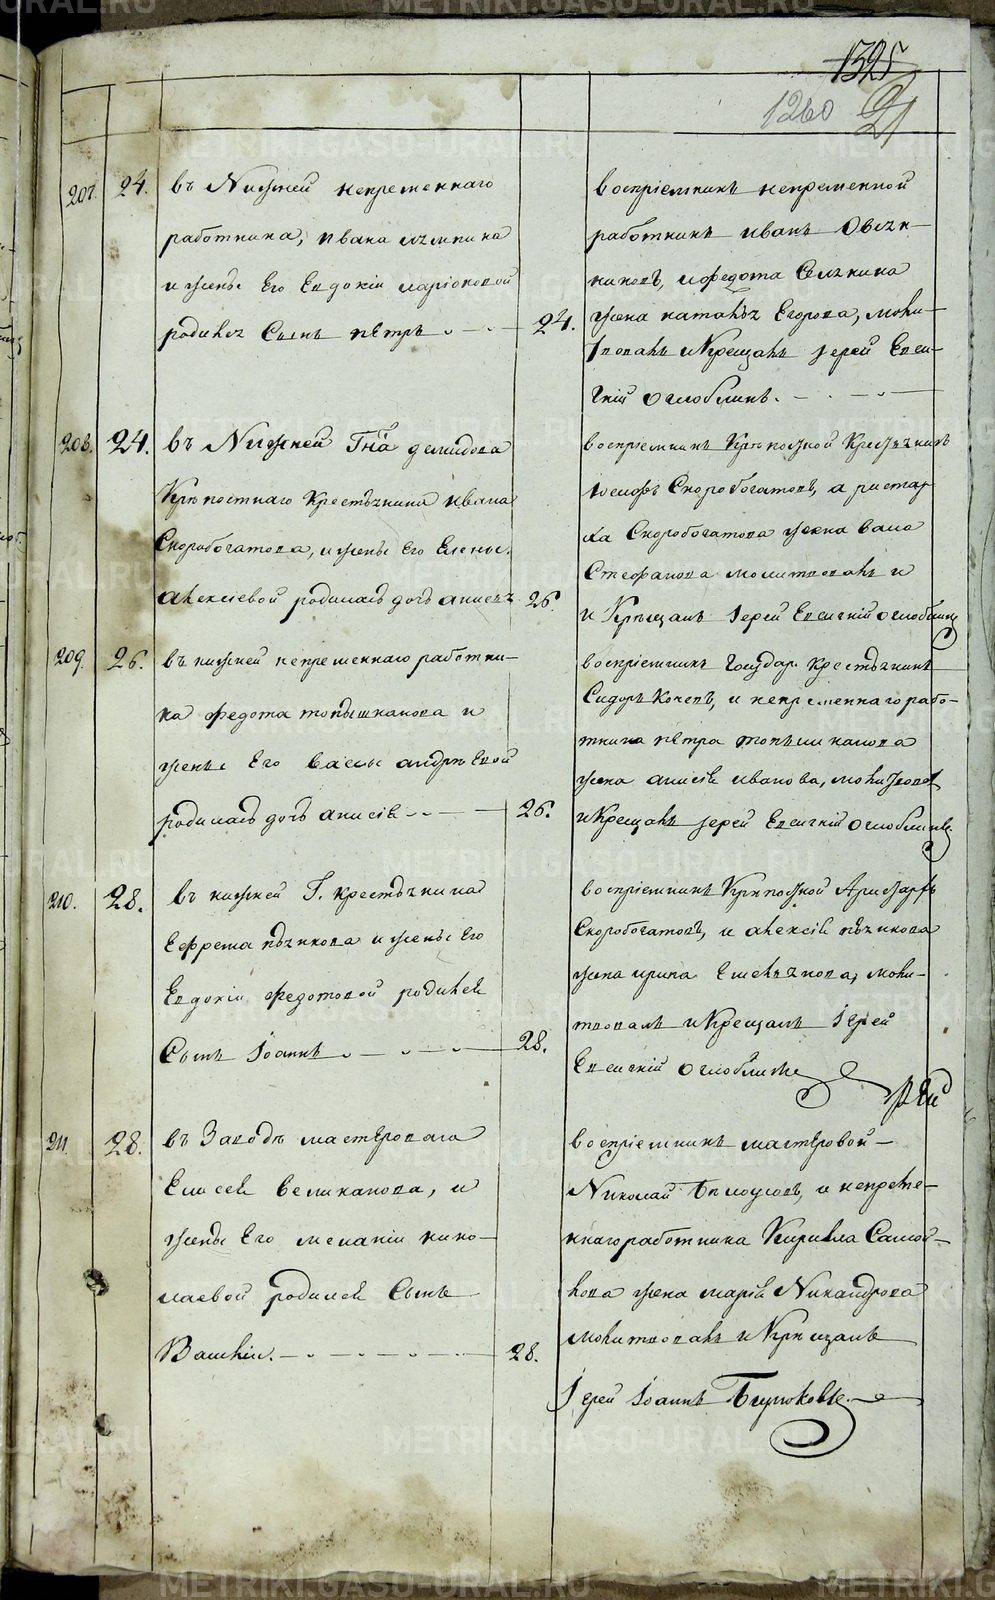 1325
1260
21
207. 24. въ Нижней непременнаго
работника, ивана
и жены Его Евдокіи ларіоновой
родился Сынъ пётръ 24.
воспріемникъ непременной
работникъ иванъ Овчин-
никовъ, и федота
жена наталья Егорова, моли-
твовалъ и Крещалъ іерей Евси-
гній оглоблинъ.
208. 24. въ Нижней Гна демидова
Крѣпостнаго крестьянина ивана
Скоробогатова, и жены Его Елены
алексіевой родилась дочь анисья 26.
воспріемникъ Крѣпостной Крестьянинъ
іосифъ Скоробогатовъ, аристар
ха Скоробогатова жена васа
Стефанова молитвовалъ и
и Крѣщалъ іерей Евсигній оглоблинъ
209. 26. въ нижней непременнаго работни-
ка федота топышканова и
жены Его васы андреевой
родилась дочь анисія 26.
воспріемникъ Государ. крестьянинъ
Сидоръ Кочевъ, и непременнаго рабо-
тника пётра топышканова
жена анисія иванова, молитвовал
и Крещалъ іерей Евсигній оглоблинъ
210. 28. въ нижней Г. крестьянина
Ефрема пьянкова и жены Его
Евдокіи федотовой родился
Сынъ іоаннъ 28.
воспріемникъ Крѣпостной Аристархъ
Скоробогатовъ, и алексія пьянкова
жена ирина Емельянова, моли-
твовалъ и Крещалъ іерей
Евсигній оглоблинъ
211. 28. въ Заводѣ мастероваго
Елисея великанова, и
жены Его меланіи нико-
лаевой родился Сынъ
Василій. 28.
воспріемникъ мастеровой
Николай Бѣлоусовъ, и непреме-
ннаго работника Кирилла Самой-
лова жена марія Никандрова
молитвовалъ и Крѣщалъ
іерей іоаннъ Бирюковъ.
METRIKI.GASO-URAL.RU